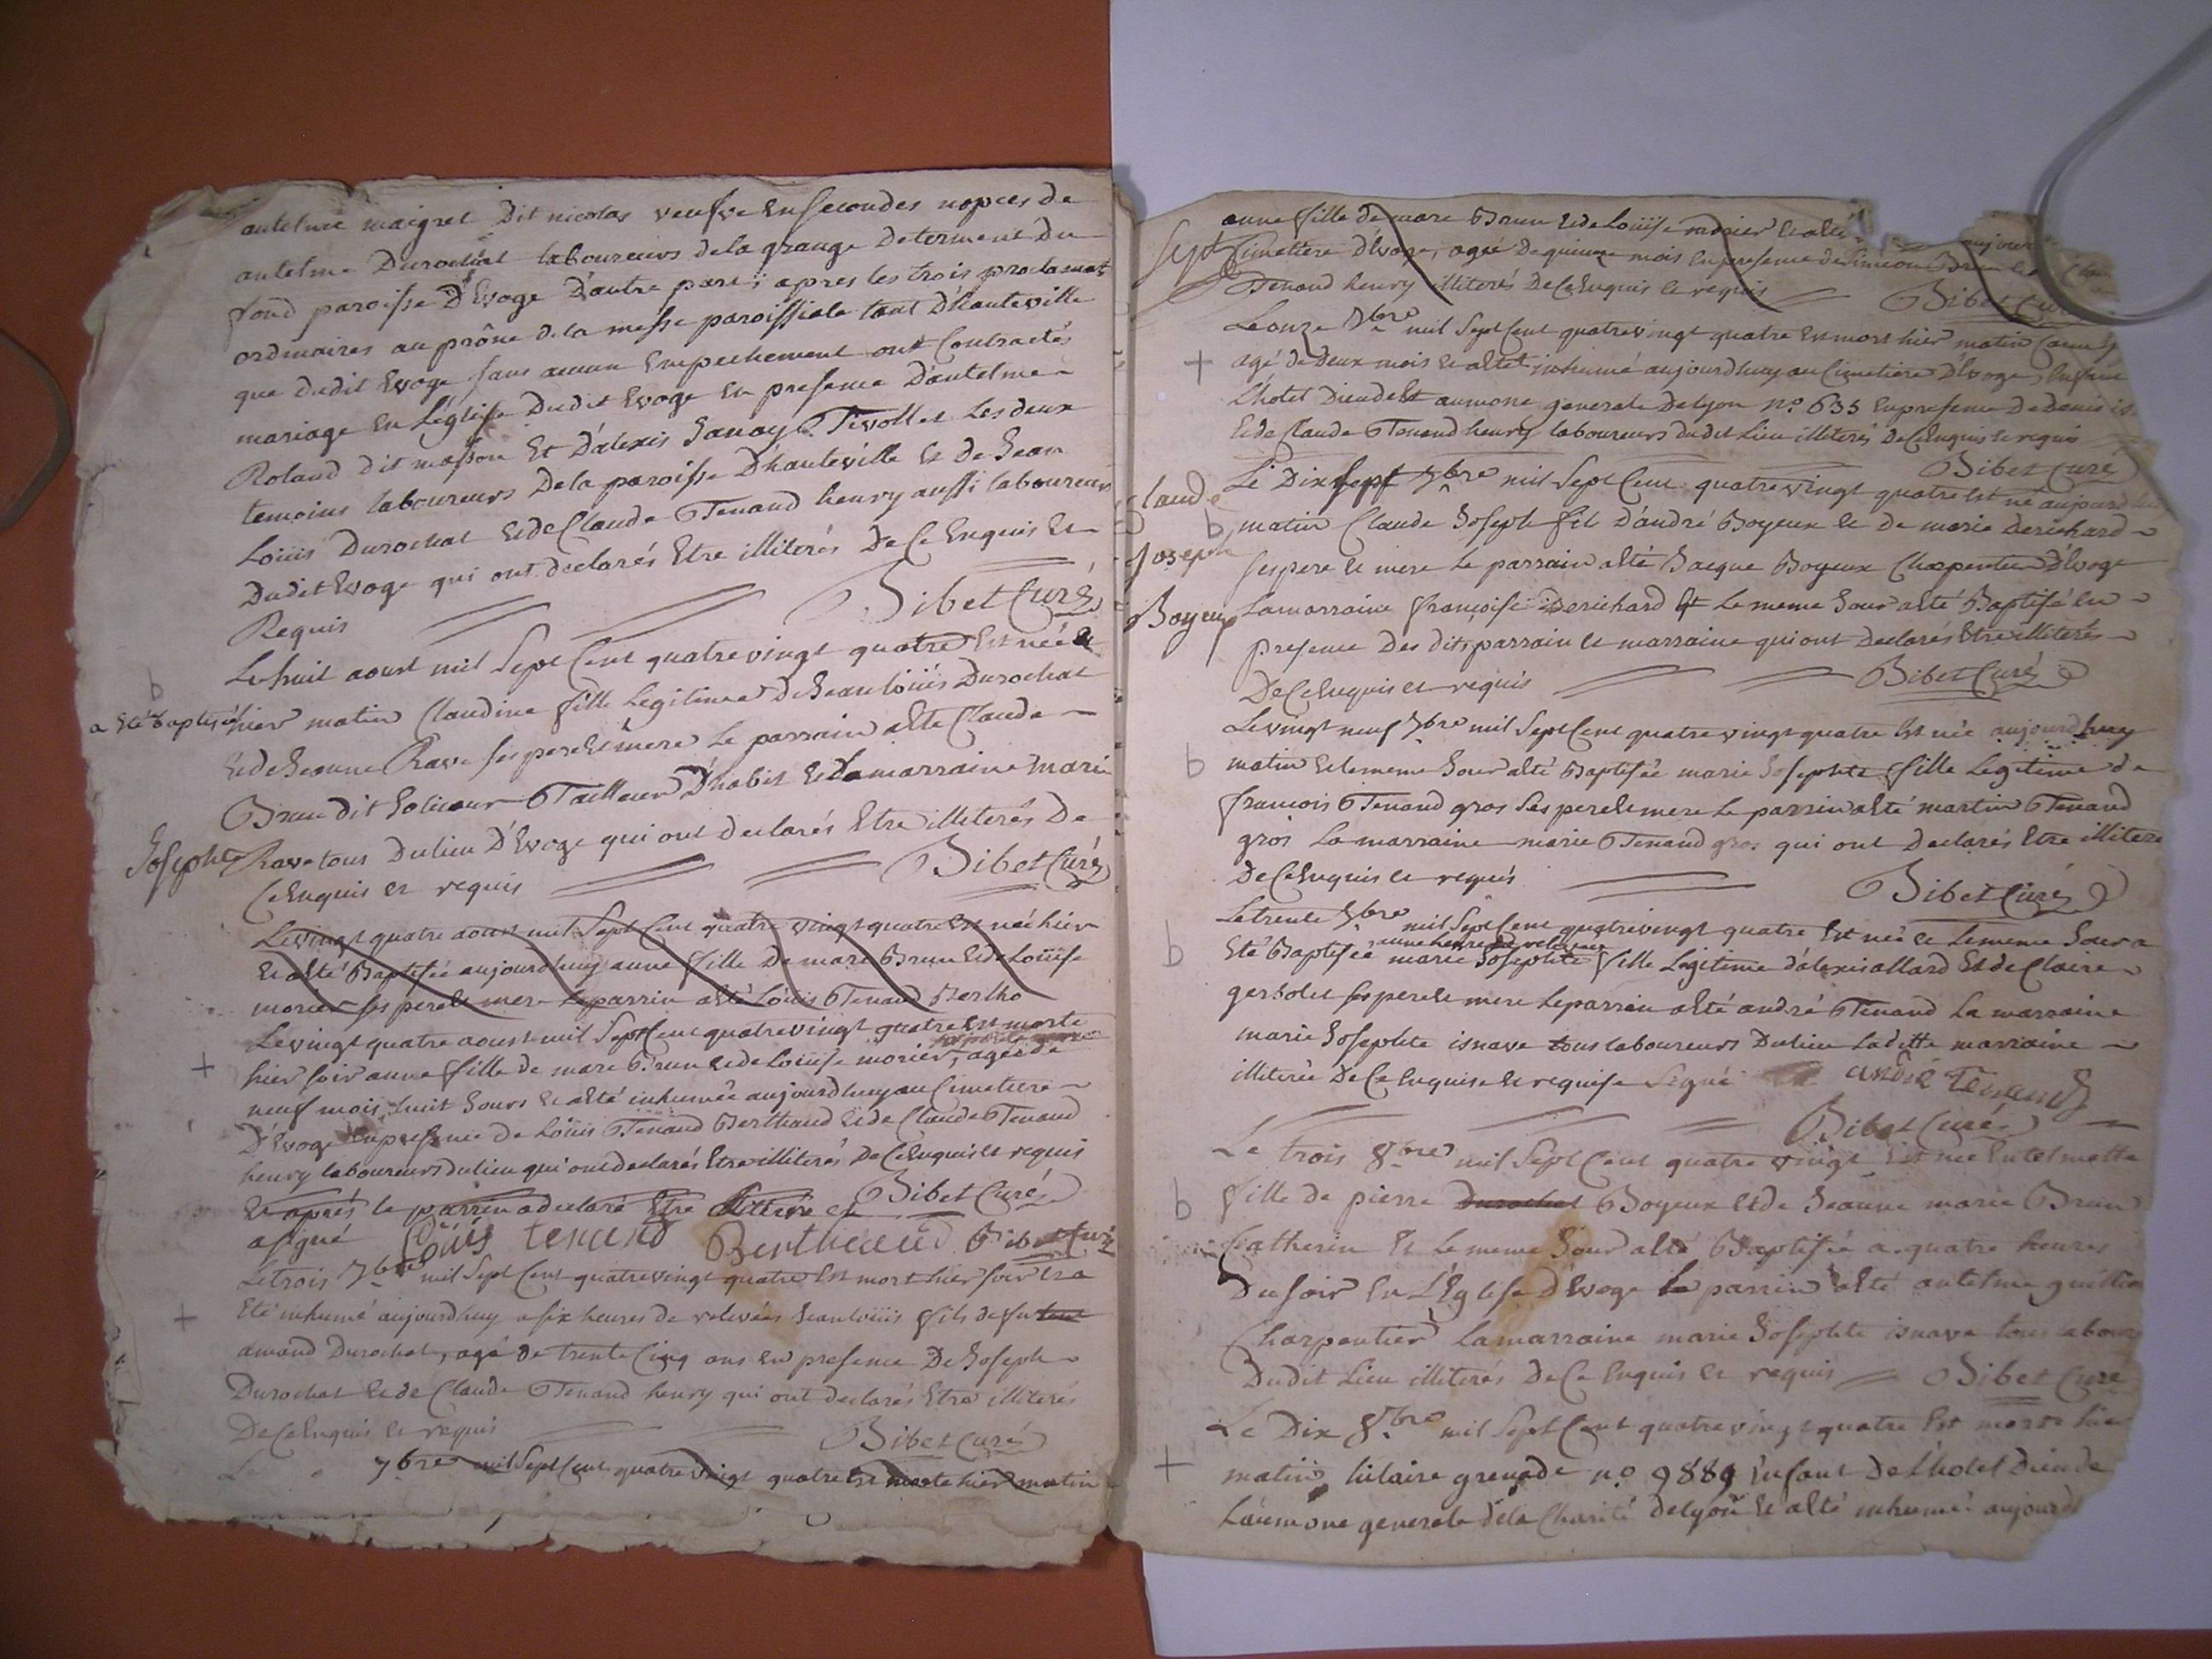 antelme maigret Dit nicolas veufve En secondes nopces de
antelme Durochat laboureurs de la grange
fond paroisse D'Evoge D'autre part; apres les trois proclamat
ordinaires au prône de la messe paroissiale tant D'hauteville
que dudit Evoge sans aucun Empechement ont Contractés
mariage En L'église Dudit Evoge En presence D'antelme
Roland dit masson Et D'alexis Tivollet Les deux
temoins laboureurs De la paroisse D'hauteville Et de Jean
Loüis Durochat Et de Claude Tenand henry aussi laboureurs
Dudit Evoge qui ont declarés Etre illiterés De Ce Enquis Et
Requis Bibet Curé
Le huit aoust mil Sept Cent quatre vingt quatre Est née &
a Eté baptisée hier matin Claudine fille Legitime de Jean loüis Durochat
Et de Jeanne Rave ses pere Et mere Le parrain a Eté Claude
Brun dit Tailleur D'habit Et La marraine marie
Josephte Rave tous Du lieu D'Evoge qui ont declarés Etre illiterés De
Ce Enquis Et requis Bibet Curé
Le vingt quatre aoust mil Sept Cent quatre vingt quatre Est née hier
Et a Eté Baptisée aujourdhuy anne fille De marc Brun Et de Loüise
morier ses pere Et mere Le parrin a Eté Loüis Tenand Bertho
Le vingt quatre aoust mil Sept Cent quatre vingt quatre Est morte
hier soir anne fille de marc Brun Et de Loüise morier, agée de
neuf mois huit Jours Et a Eté inhumée aujourdhuy au Cimetiere
D'Evoge En presence de Loüis Tenand Berthaud Et de Claude Tenand
henry laboureurs du lieu qui ont declarés Etre illiterés De Ce Enquis Et requis
Et aprés le parrin a declaré Etre illiteré Bibet Curé
a signé Loüis tenand Berthaud Bibet Curé
Le trois 7bre mil Sept Cent quatre vingt quatre Est mort hier soir Et a
Eté inhumé aujourdhuy a six heures de relevées Jean loüis fils de fu
amand Durochat, agé de trente Cinq ans En presence De Joseph
Durochat Et de Claude Tenand henry qui ont declarés Etre illiterés
De Ce Enquis Et requis Bibet Curé
Le 7bre mil Sept Cent quatre vingt quatre Est morte hier matin
anne fille de marc Brun Et de Loüise morier Et a Eté aujour
Sept Cimetiere D'Evoge, agée De quinze mois En presence de Simeon Brun
Tenand henry illiterés De Ce Enquis Et requis Bibet Cur
Le onze 7bre mil Sept Cent quatre vingt quatre Est mort hier matin
agé de Deux mois Et a Eté inhumé aujourdhuy au Cimetiere D'Evoge, Enfant
L'hotel Dieu de Et aumone generale De lyon no 635 En presence De Denis
Et de Claude Tenand henry laboureurs du dit Lieu illiterés De Ce Enquis Et requis
Bibet Curé
Claude Joseph Boyeux
Le Dix sept 7bre mil Sept Cent quatre vingt quatre Est né aujourd
matin Claude Joseph fils D'andré Boyeux Et de marie Derichard
ses pere Et mere Le parrain a Eté Jacque Boyeux Charpentier D'Evoge
La marraine françoise Derichard Et Le meme Jour a Eté Baptisé En
presence Des dits parrain Et marraine qui ont Declarés Etre illiterés
De Ce Enquis Et requis Bibet Curé
Le vingt neuf 7bre mil Sept Cent quatre vingt quatre Est née aujourdhuy
matin Et le meme Jour a Eté Baptisée marie Josephte fille Legitime de
francois Tenand gros Ses pere Et mere Le parrin a Eté martin Tenand
gros La marraine marie Tenand gros qui ont Declarés Etre illiteré
De Ce Enquis Et requis Bibet Curé
Le trente 7bre mil Sept Cent quatre vingt quatre Est née Et Le meme Jour a
a une heure de relevée
Eté Baptisée marie Josephte fille Legitime d'alexis allard Et de Claire
ses pere Et mere Le parrain a Eté andré Tenand La marraine
marie Josephte isnave tous laboureurs Du lieu La ditte marraine
illiterée De Ce Enquise Et requise Signé andré Tenand
Bibet Curé
Le trois 8bre mil Sept Cent quatre vingt Est née Entelmette
fille de pierre Durochat Boyeux Et de Jeanne marie Brun
Catherin Et Le meme Jour a Eté Baptisée a quatre heures
Du soir En L'Eglise D'Evoge Le parrin a Eté antelme
Charpentier La marraine marie Josephte isnave tous labour
Du dit Lieu illiterés De Ce Enquis Et requis Bibet Curé
Le Dix 8bre mil Sept Cent quatre vingt quatre Est mort hier
matin hilaire grenade no 9889 Enfant De L'hotel Dieu de
L'aumone generale de la Charité De lyon Et a Eté inhumé aujourd